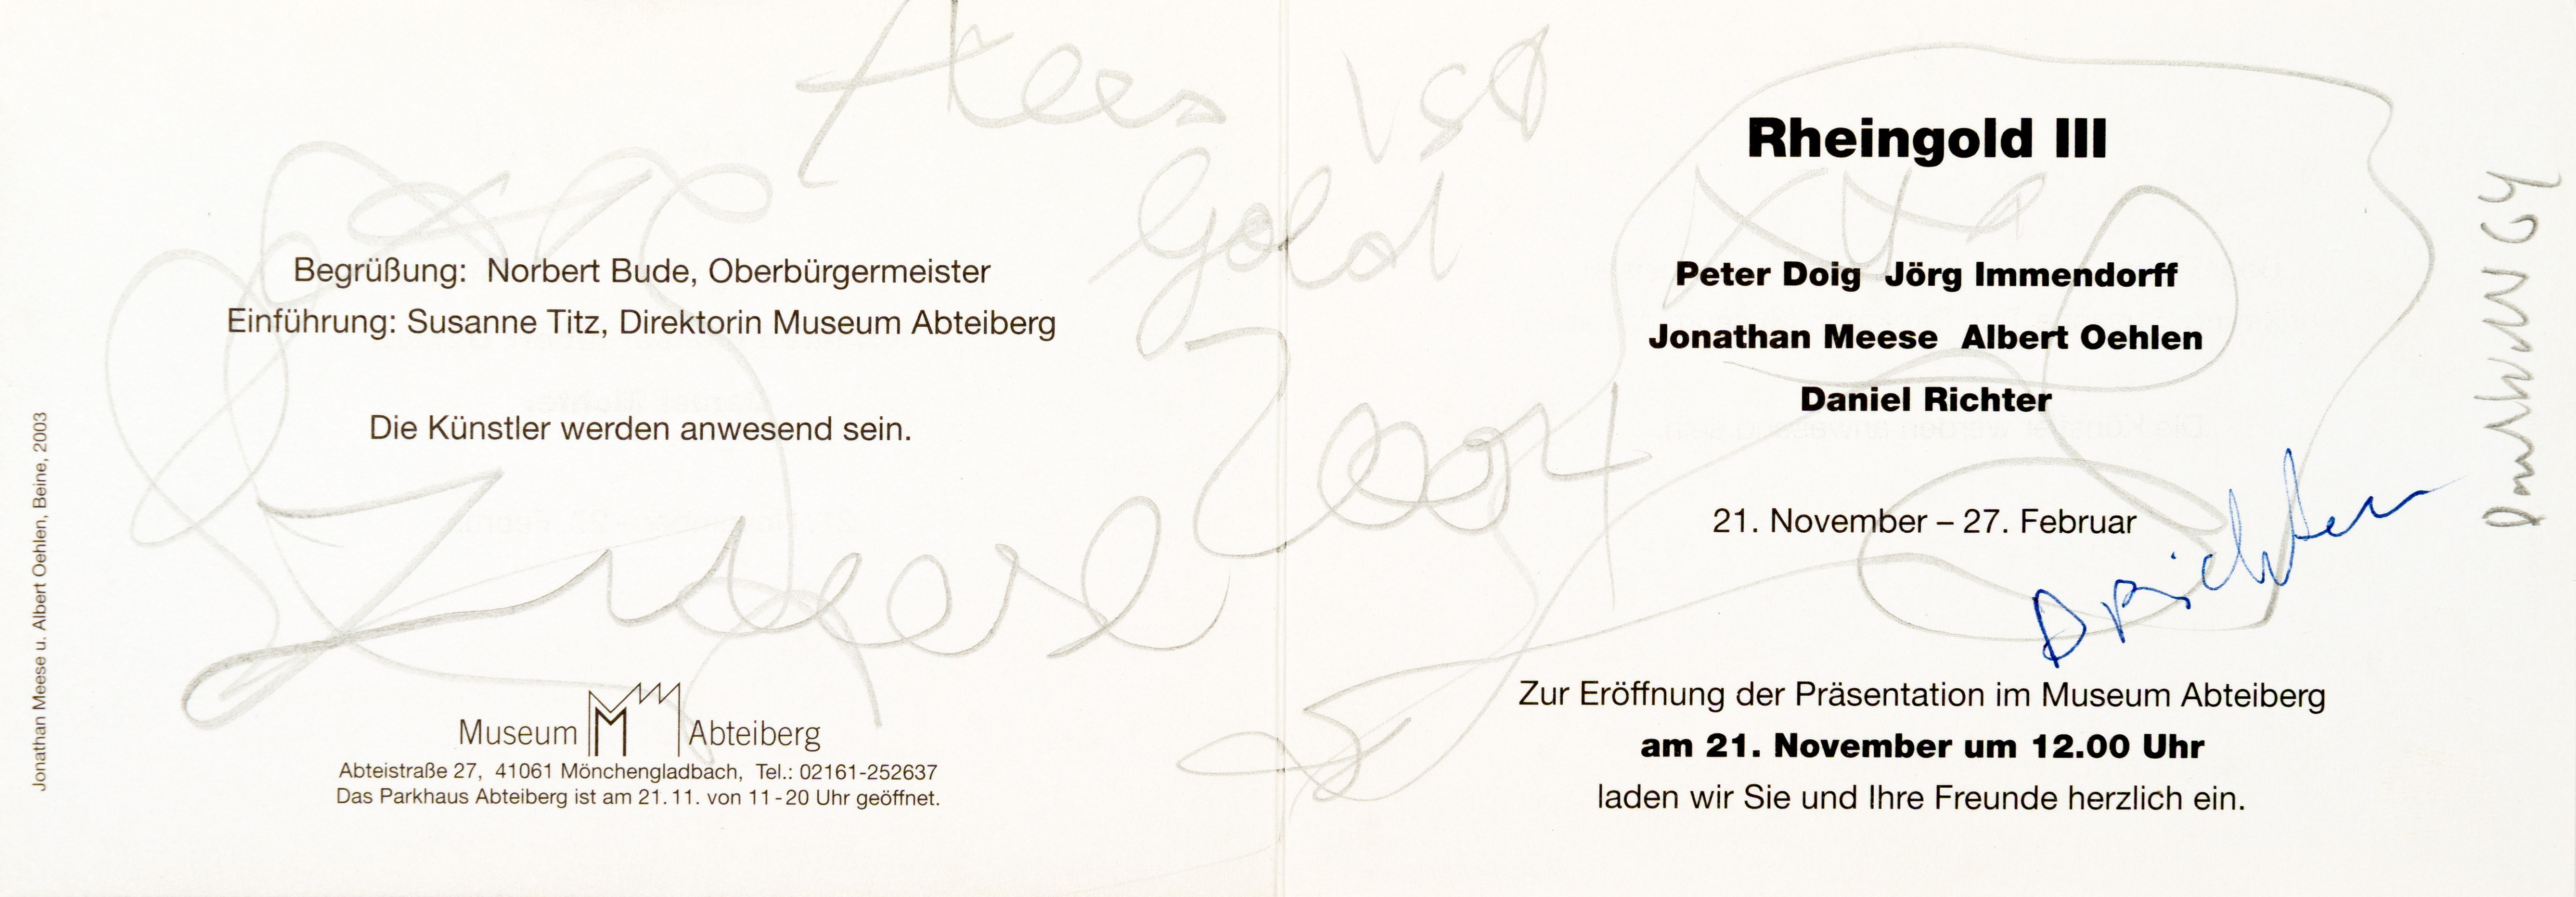 Alles ist
Gold
2004
JMeese
Begrüßung: Norbert Bude, Oberbürgermeister
Einführung: Susanne Titz, Direktorin Museum Abteiberg
Die Künstler werden anwesend sein.
Museum M Abteiberg
Abteistraße 27, 41061 Mönchengladbach, Tel.: 02161-252637
Das Parkhaus Abteiberg ist am 21.11. von 11-20 Uhr geöffnet.
Jonathan Meese u. Albert Oehlen, Beine, 2003
Rheingold III
Peter Doig Jörg Immendorff
Jonathan Meese Albert Oehlen
Daniel Richter
21. November – 27. Februar
D Richter
Zur Eröffnung der Präsentation im Museum Abteiberg
am 21. November um 12.00 Uhr
laden wir Sie und Ihre Freunde herzlich ein.